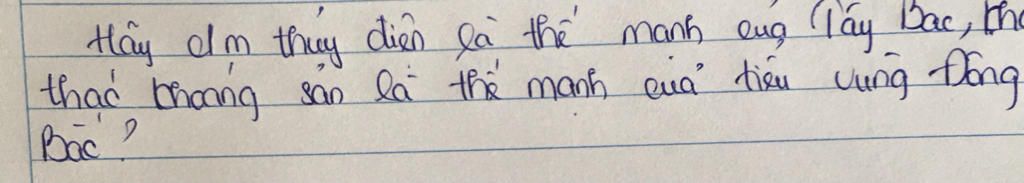 Hãy c/m thủy điện là thế mạnh của Tây Bắc, kha
thác khoáng sản là thế mạnh của tiểu vùng Đông
Bắc?